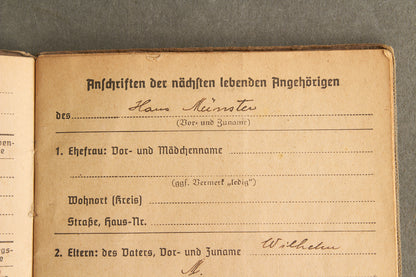 Anschriften der nächsten lebenden Angehörigen
des Hans Münster
(Vor- und Zuname)
1. Ehefrau: Vor- und Mädchenname
(ggf. Vermerk „ledig")
Wohnort (Kreis)
Straße, Haus-Nr.
2. Eltern: des Vaters, Vor- und Zuname Wilhelm
M.